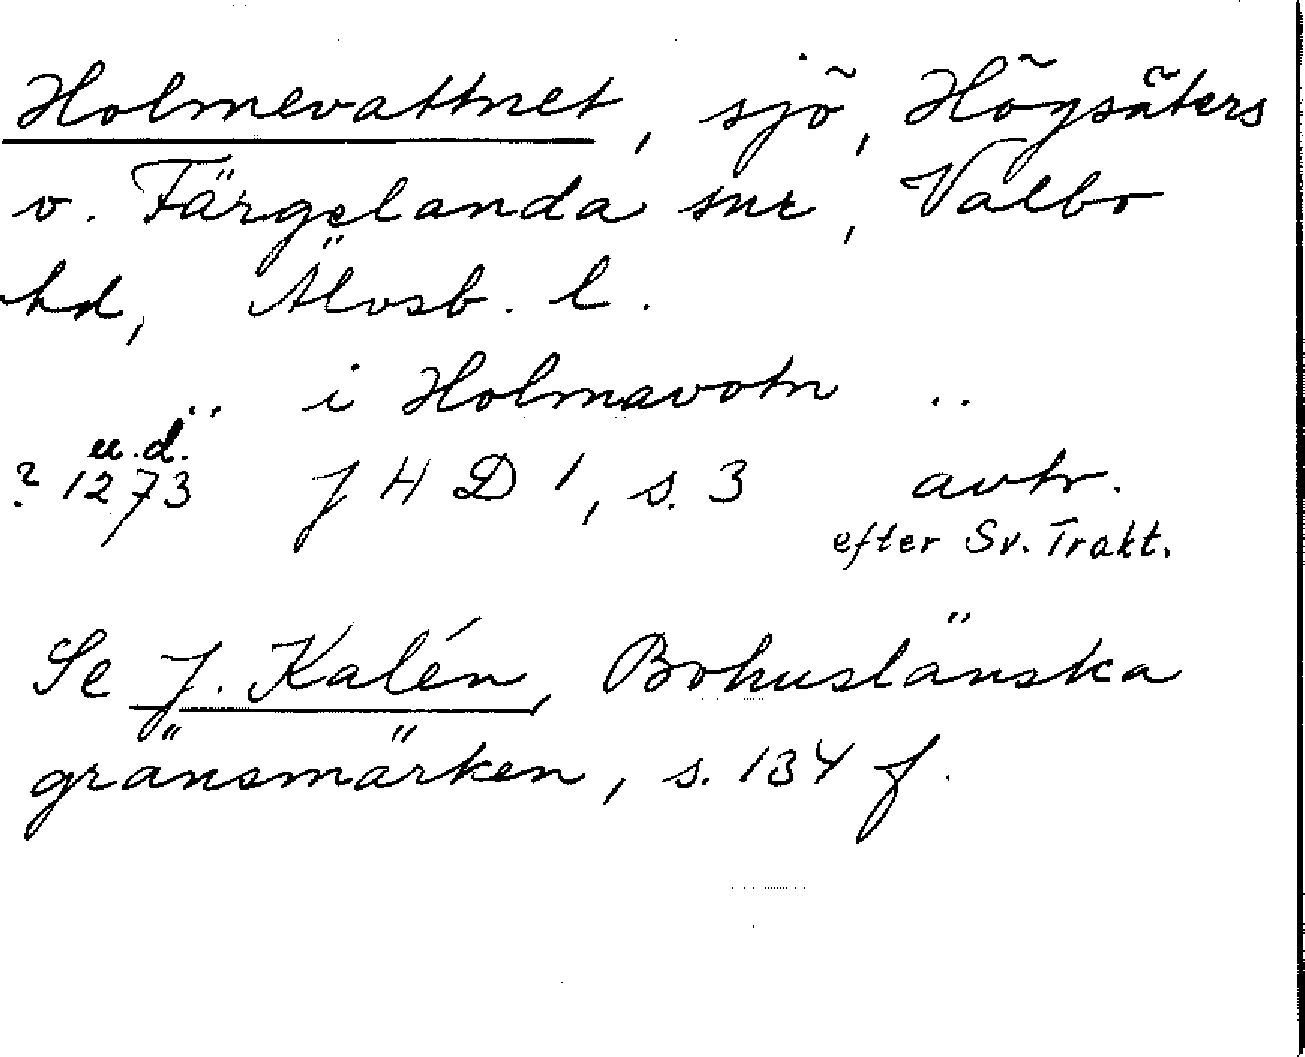 Holmevattnet, sjö, Högsäters
v. Färgelanda snr, Valbo
hd, Älvsb. l.
.. i Holmavotn ..
u.d.
? 1273 JHD 1, s. 3 avtr.
efter Sv. Trakt.
Se J. Kalén, Bohuslänska
gränsmärken, s. 134 f.